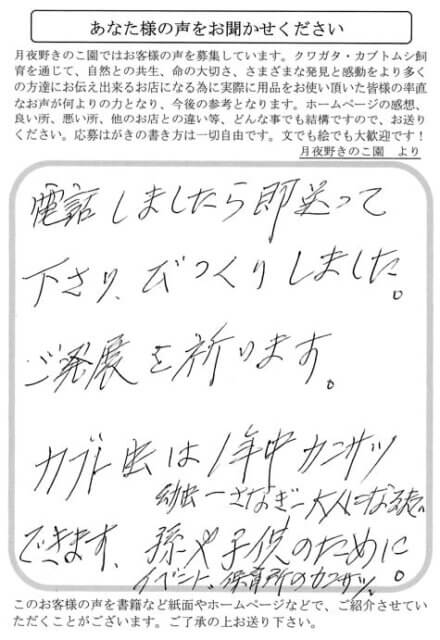 あなた様の声をお聞かせください
月夜野きのこ園ではお客様の声を募集しています。クワガタ・カブトムシ飼
育を通じて、自然との共生、命の大切さ、さまざまな発見と感動をより多く
の方達にお伝え出来るお店になる為に実際に用品をお使い頂いた皆様の率直
なお声が何よりの力となり、今後の参考となります。ホームページの感想、
良い所、悪い所、他のお店との違い等、どんな事でも結構ですので、お送り
ください。応募はがきの書き方は一切自由です。文でも絵でも大歓迎です！
月夜野きのこ園　より
電話しましたら即送って
下さり、びっくりしました。
ご発展を祈ります。
カブト虫は1年中カンサツ
幼虫ーさなぎー大人になる
できます、孫や子供のために
イベント、保育所のカンサツ。
このお客様の声を書籍など紙面やホームページなどで、ご紹介させてい
ただくことがございます。ご了承の上お送り下さい。